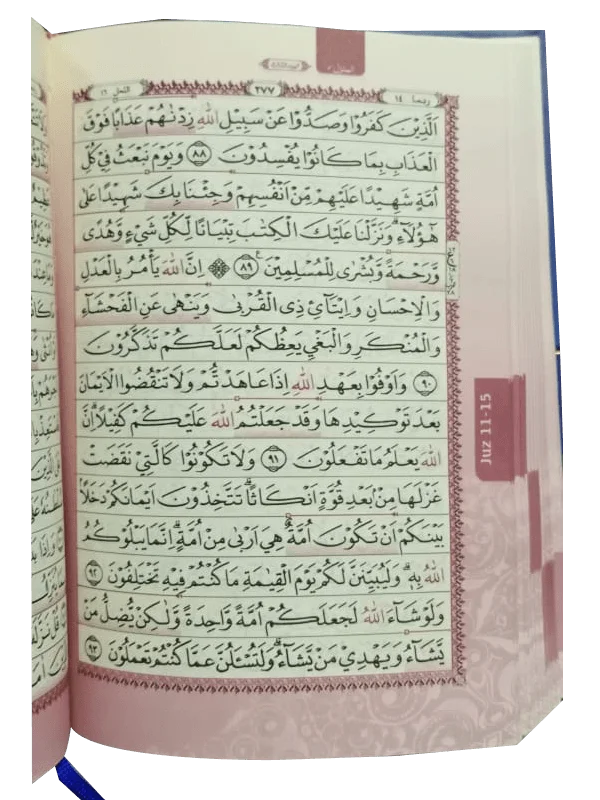 النحل ١٦
٢٧٧
ربما ١٤
اَلَّذِيْنَ كَفَرُوْا وَصَدُّوْا عَنْ سَبِيْلِ اللّٰهِ زِدْنٰهُمْ عَذَابًا فَوْقَ
الْعَذَابِ بِمَا كَانُوْا يُفْسِدُوْنَ ٨٨ وَيَوْمَ نَبْعَثُ فِيْ كُلِّ
اُمَّةٍ شَهِيْدًا عَلَيْهِمْ مِّنْ اَنْفُسِهِمْ وَجِئْنَا بِكَ شَهِيْدًا عَلٰى
هٰٓؤُلَاۤءِۗ وَنَزَّلْنَا عَلَيْكَ الْكِتٰبَ تِبْيَانًا لِّكُلِّ شَيْءٍ وَّهُدًى
وَّرَحْمَةً وَّبُشْرٰى لِلْمُسْلِمِيْنَ ٨٩ ۞ اِنَّ اللّٰهَ يَأْمُرُ بِالْعَدْلِ
وَالْاِحْسَانِ وَاِيْتَاۤئِ ذِى الْقُرْبٰى وَيَنْهٰى عَنِ الْفَحْشَاۤءِ
وَالْمُنْكَرِ وَالْبَغْيِ يَعِظُكُمْ لَعَلَّكُمْ تَذَكَّرُوْنَ
٩٠ وَاَوْفُوْا بِعَهْدِ اللّٰهِ اِذَا عَاهَدْتُّمْ وَلَا تَنْقُضُوا الْاَيْمَانَ
بَعْدَ تَوْكِيْدِهَا وَقَدْ جَعَلْتُمُ اللّٰهَ عَلَيْكُمْ كَفِيْلًاۗ اِنَّ
اللّٰهَ يَعْلَمُ مَا تَفْعَلُوْنَ ٩١ وَلَا تَكُوْنُوْا كَالَّتِيْ نَقَضَتْ
غَزْلَهَا مِنْۢ بَعْدِ قُوَّةٍ اَنْكَاثًاۗ تَتَّخِذُوْنَ اَيْمَانَكُمْ دَخَلًاۢ
بَيْنَكُمْ اَنْ تَكُوْنَ اُمَّةٌ هِيَ اَرْبٰى مِنْ اُمَّةٍۗ اِنَّمَا يَبْلُوْكُمُ
اللّٰهُ بِهٖۗ وَلَيُبَيِّنَنَّ لَكُمْ يَوْمَ الْقِيٰمَةِ مَا كُنْتُمْ فِيْهِ تَخْتَلِفُوْنَ ٩٢
وَلَوْ شَاۤءَ اللّٰهُ لَجَعَلَكُمْ اُمَّةً وَّاحِدَةً وَّلٰكِنْ يُّضِلُّ مَنْ
يَّشَاۤءُ وَيَهْدِيْ مَنْ يَّشَاۤءُۗ وَلَتُسْـَٔلُنَّ عَمَّا كُنْتُمْ تَعْمَلُوْنَ ٩٣
Juz 11-15